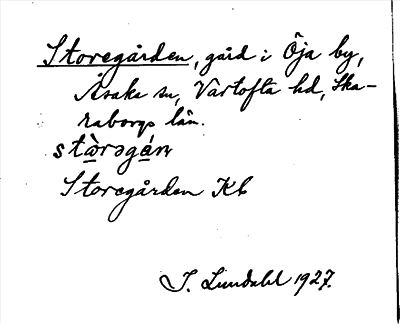 Storegården, gård i Öja by,
Åsaka sn, Vartofta hd, Ska-
raborgs län.
stòrəgán
Storegården Kb
I. Lundahl 1927.